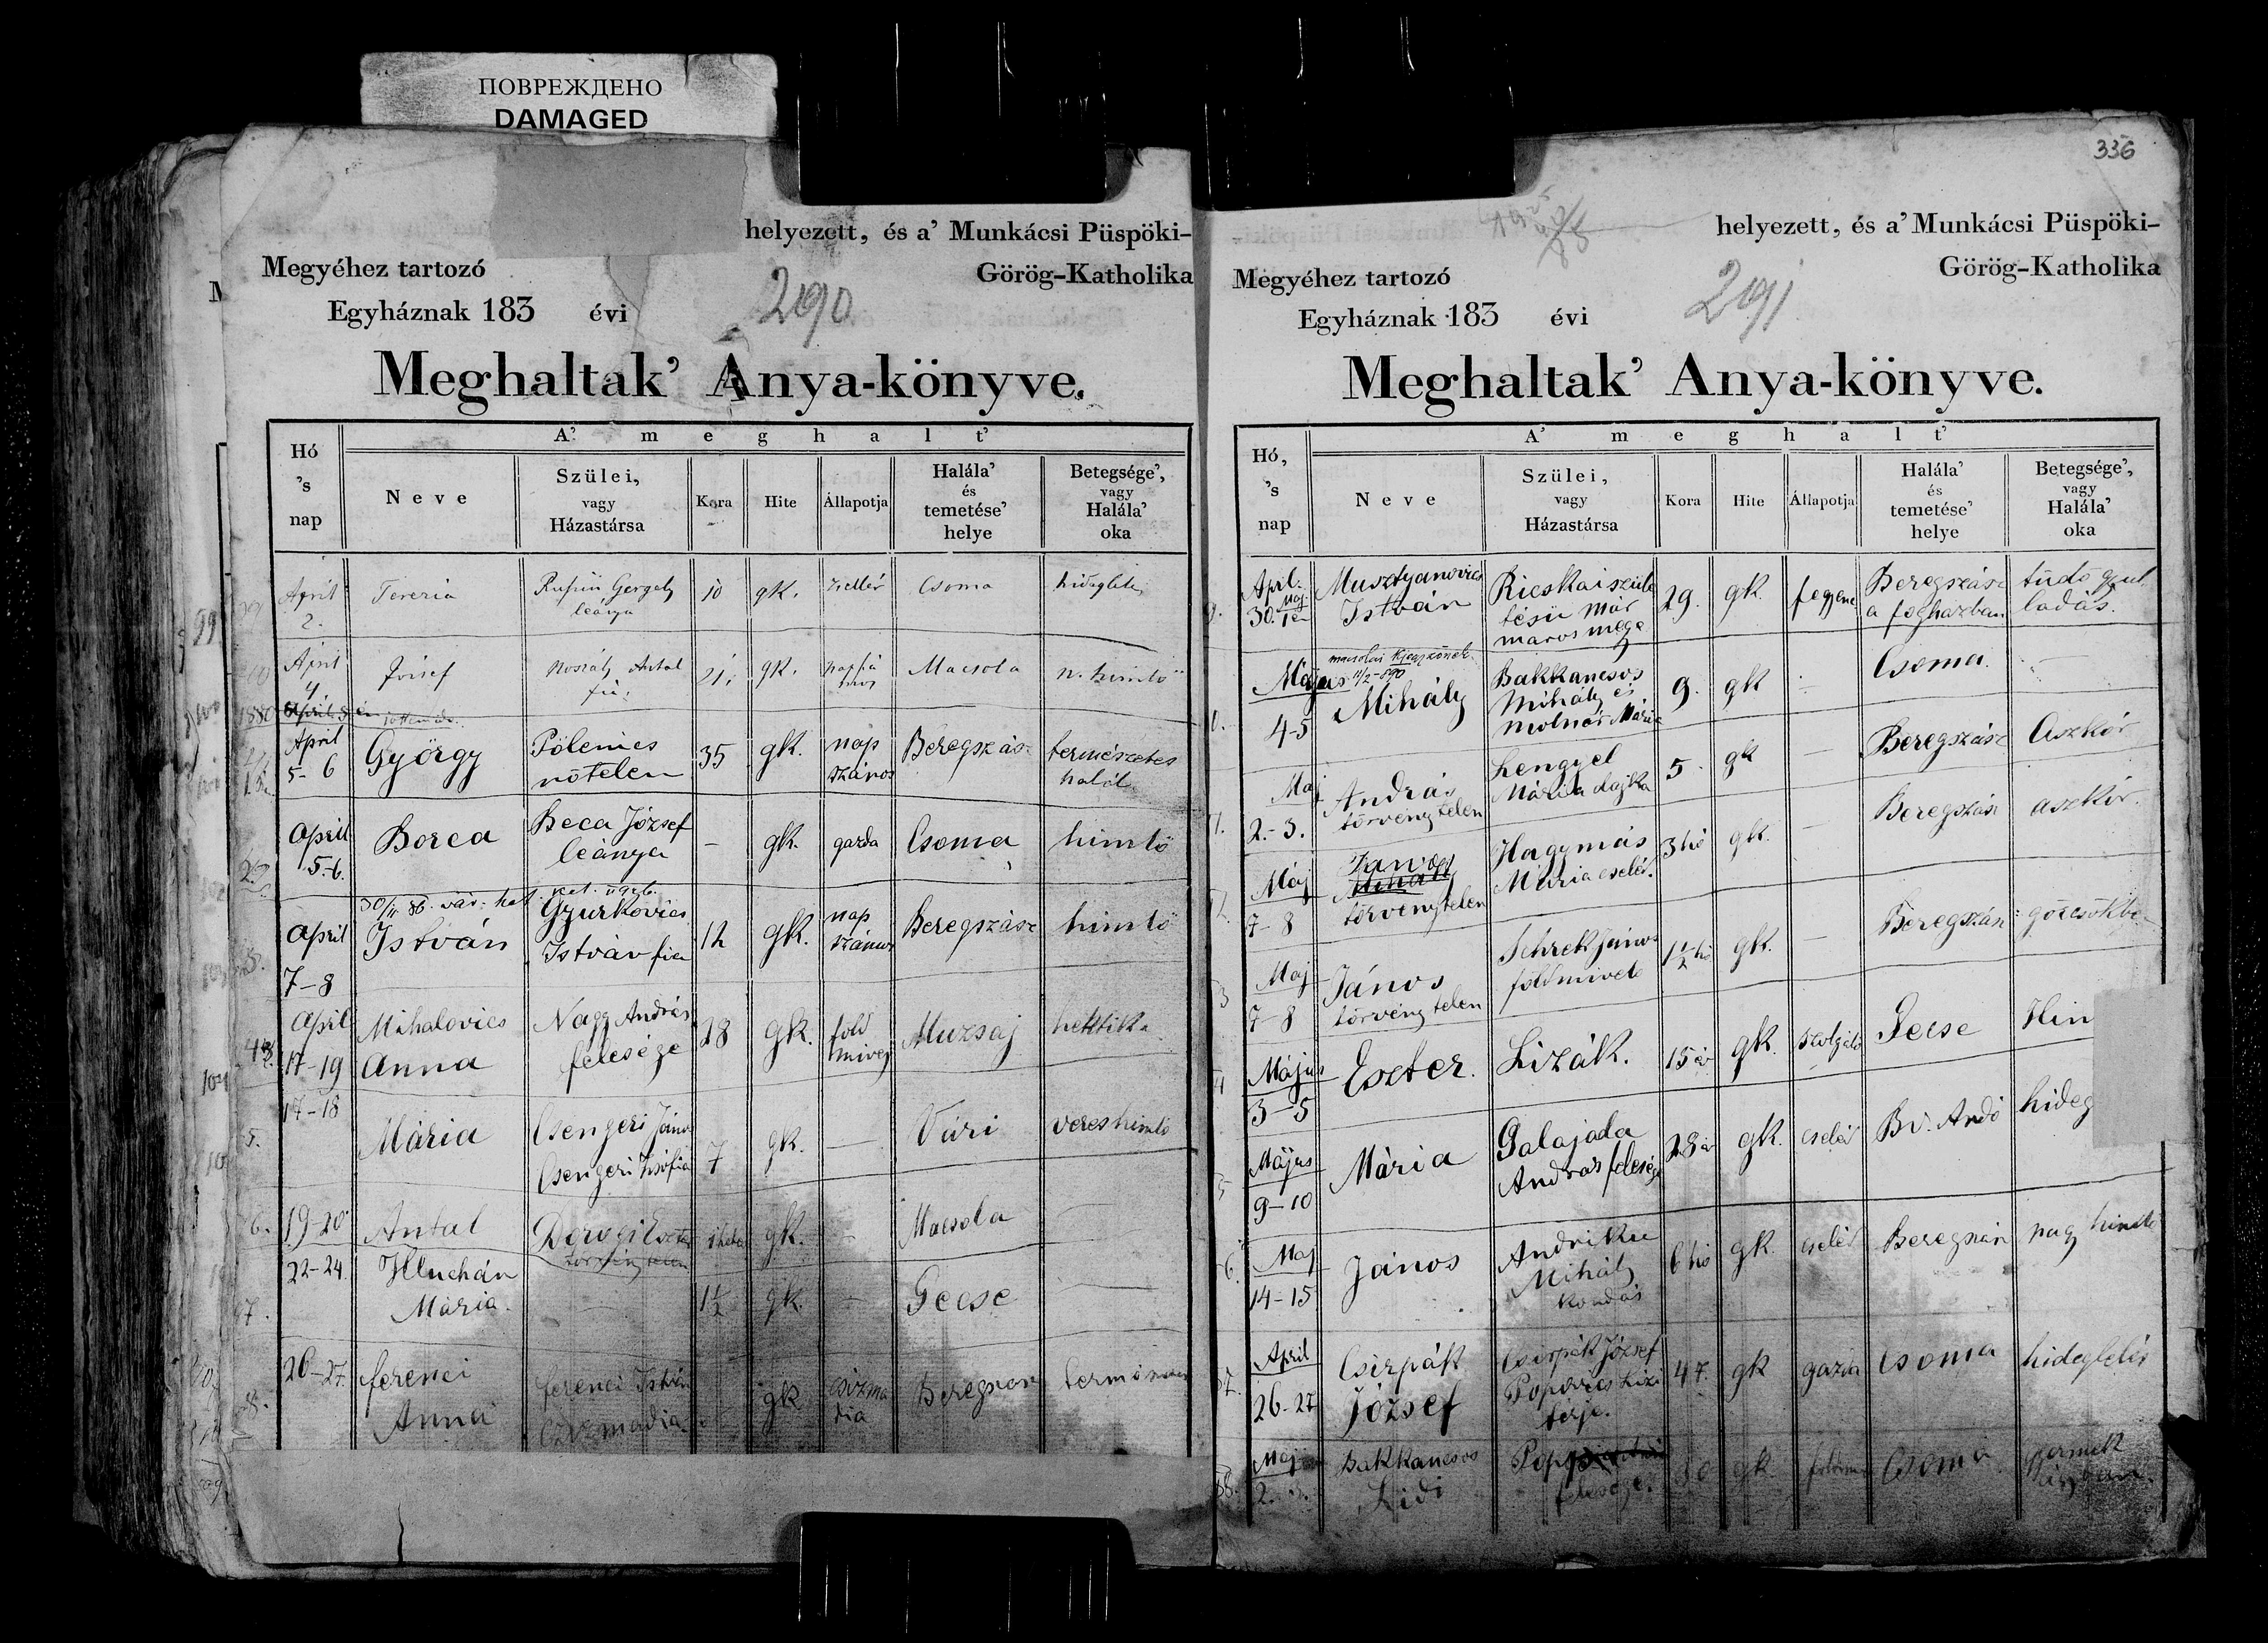 ПОВРЕЖДЕНО
DAMAGED
helyezett, és a' Munkácsi Püspöki-
Megyéhez tartozó
Görög-Katholika
Egyháznak 183 évi
290
Meghaltak' Anya-könyve.
A' meghalt'
Hó
's
nap
Neve
Szülei,
vagy
Házastársa
Kora
Hite
Állapotja
Halála'
és
temetése'
helye
Betegsége',
vagy
Halála'
oka
April
2.
Terezia
Gergely
leánya
10
gk.
zsellér
Csoma
hideglelés
April
4
József
Antal
fia
21
gk.
Macsola
n. himlő
1880 April 5 én
April
5-6
György
Pölenics
nőtelen
35
gk.
nap
számos
Beregszász
természetes
halál
April
5-6.
Borca
Beca József
leánya
-
gk.
gazda
Csoma
himlő
April
7-8
István
Gyurkovics
István fia
12
gk.
nap
számos
Beregszász
himlő
April
17-19
Mihalovics
Anna
Nagy András
felesége
28
gk.
föld
mives
Muzsaj
hektika
17-18
Mária
Csengeri János
Csengeri Zsófia
7
gk.
-
Vári
veres himlő
19-20
Antal
Dorogi Eszter
törvénytelen
gk.
-
Macsola
22-24.
Hluchán
Mária.
1½
gk.
-
Gecse
26-27.
ferenci
Anna
ferenci István
csizmadia
gk
csizma
dia
336
helyezett, és a' Munkácsi Püspöki-
Megyéhez tartozó
Görög-Katholika
Egyháznak 183 évi
291
Meghaltak' Anya-könyve.
A' meghalt'
Hó,
's
nap
Neve
Szülei,
vagy
Házastársa
Kora
Hite
Állapotja
Halála'
és
temetése'
helye
Betegsége',
vagy
Halála'
oka
April.
30. Maj 1én
Musztyanovics
István
Ricskai szüle
tésü már
maros mege
29.
gk.
fegyenc
Beregszász
a fogházban
tüdő gyul
ladás.
Május
4-5
Mihály
Bakkancsos
Mihály és
Molnár Mária
9.
gk
Csoma.
Maj
2.-3.
András
törvénytelen
Lengyel
Mária dajka
5.
gk
-
Beregszász
Aszkór
Máj
7-8
János
törvénytelen
Hagymás
Mária cseléd.
3 hó
gk.
-
Beregszász
aszkór.
Maj
7-8
János
törvénytelen
Schrek János
földmivelő
1½ hó
gk.
-
Beregszász
görcsökbe
Május
3-5
Eszter.
Lizák.
15 év
gk.
szolgáló
Gecse
Him
Május
9-10
Mária
Galajada
András felesége
28 év
gk.
cseléd
B. Ardó
hideg
Maj
14-15
János
Andriku
Mihály
kondás
6 hó
gk.
cseléd
Beregszász
nagy himlő
April
26-27
Csirpák
József
Csirpák József
Popovics
férje.
47.
gk
gazda
Csoma
hideglelés
Maj
2.
Bakkancsos
Lidi
felesége.
gk.
Csoma